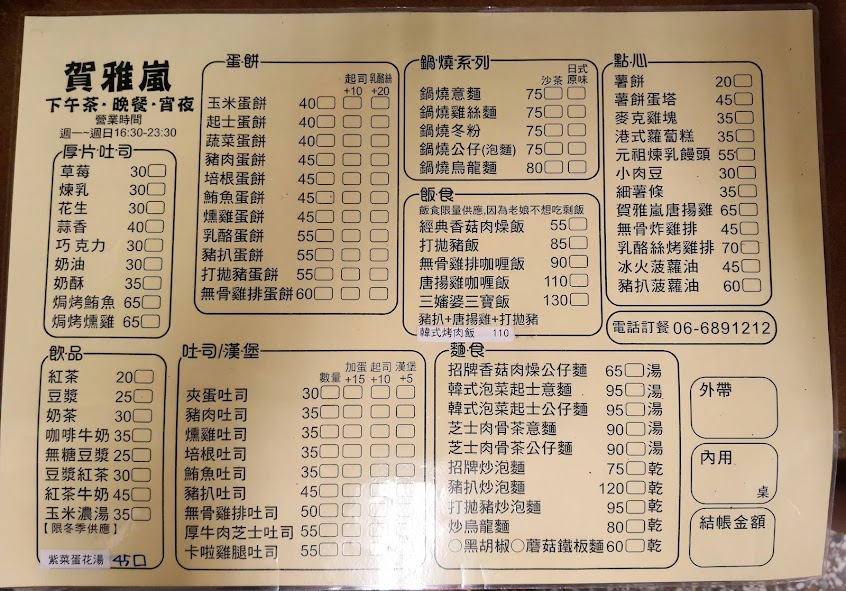 賀雅嵐
下午茶・晚餐・宵夜
營業時間
週一~週日16:30-23:30
厚片吐司
草莓 30
煉乳 30
花生 30
蒜香 40
巧克力 30
奶油 30
奶酥 35
焗烤鮪魚 65
焗烤燻雞 65
飲品
紅茶 20
豆漿 25
奶茶 30
咖啡牛奶 35
無糖豆漿 25
豆漿紅茶 30
紅茶牛奶 45
玉米濃湯 35
【限冬季供應】
紫菜蛋花湯 45
蛋餅
起司 乳酪絲
+10 +20
玉米蛋餅 40
起士蛋餅 40
蔬菜蛋餅 40
豬肉蛋餅 45
培根蛋餅 45
鮪魚蛋餅 45
燻雞蛋餅 45
乳酪蛋餅 55
豬扒蛋餅 55
打拋豬蛋餅 55
無骨雞排蛋餅 60
吐司/漢堡
加蛋 起司 漢堡
數量 +15 +10 +5
夾蛋吐司 30
豬肉吐司 35
燻雞吐司 35
培根吐司 35
鮪魚吐司 35
豬扒吐司 45
無骨雞排吐司 50
厚牛肉芝士吐司 55
卡啦雞腿吐司 55
鍋燒系列
日式
沙茶 原味
鍋燒意麵 75
鍋燒雞絲麵 75
鍋燒冬粉 75
鍋燒公仔(泡麵) 75
鍋燒烏龍麵 80
飯食
飯食限量供應,因為老娘不想吃剩飯
經典香菇肉燥飯 55
打拋豬飯 85
無骨雞排咖喱飯 90
唐揚雞咖喱飯 110
三嬸婆三寶飯 130
豬扒+唐揚雞+打拋豬
韓式烤肉飯 110
麵食
招牌香菇肉燥公仔麵 65 湯
韓式泡菜起士意麵 95 湯
韓式泡菜起士公仔麵 95 湯
芝士肉骨茶意麵 90 湯
芝士肉骨茶公仔麵 90 湯
招牌炒泡麵 75 乾
豬扒炒泡麵 120 乾
打拋豬炒泡麵 95 乾
炒烏龍麵 80 乾
○黑胡椒○蘑菇鐵板麵 60 乾
點心
薯餅 20
薯餅蛋塔 45
麥克雞塊 35
港式蘿蔔糕 35
元祖煉乳饅頭 55
小肉豆 30
細薯條 35
賀雅嵐唐揚雞 65
無骨炸雞排 45
乳酪絲烤雞排 70
冰火菠蘿油 45
豬扒菠蘿油 60
電話訂餐 06-6891212
外帶
內用
桌
結帳金額